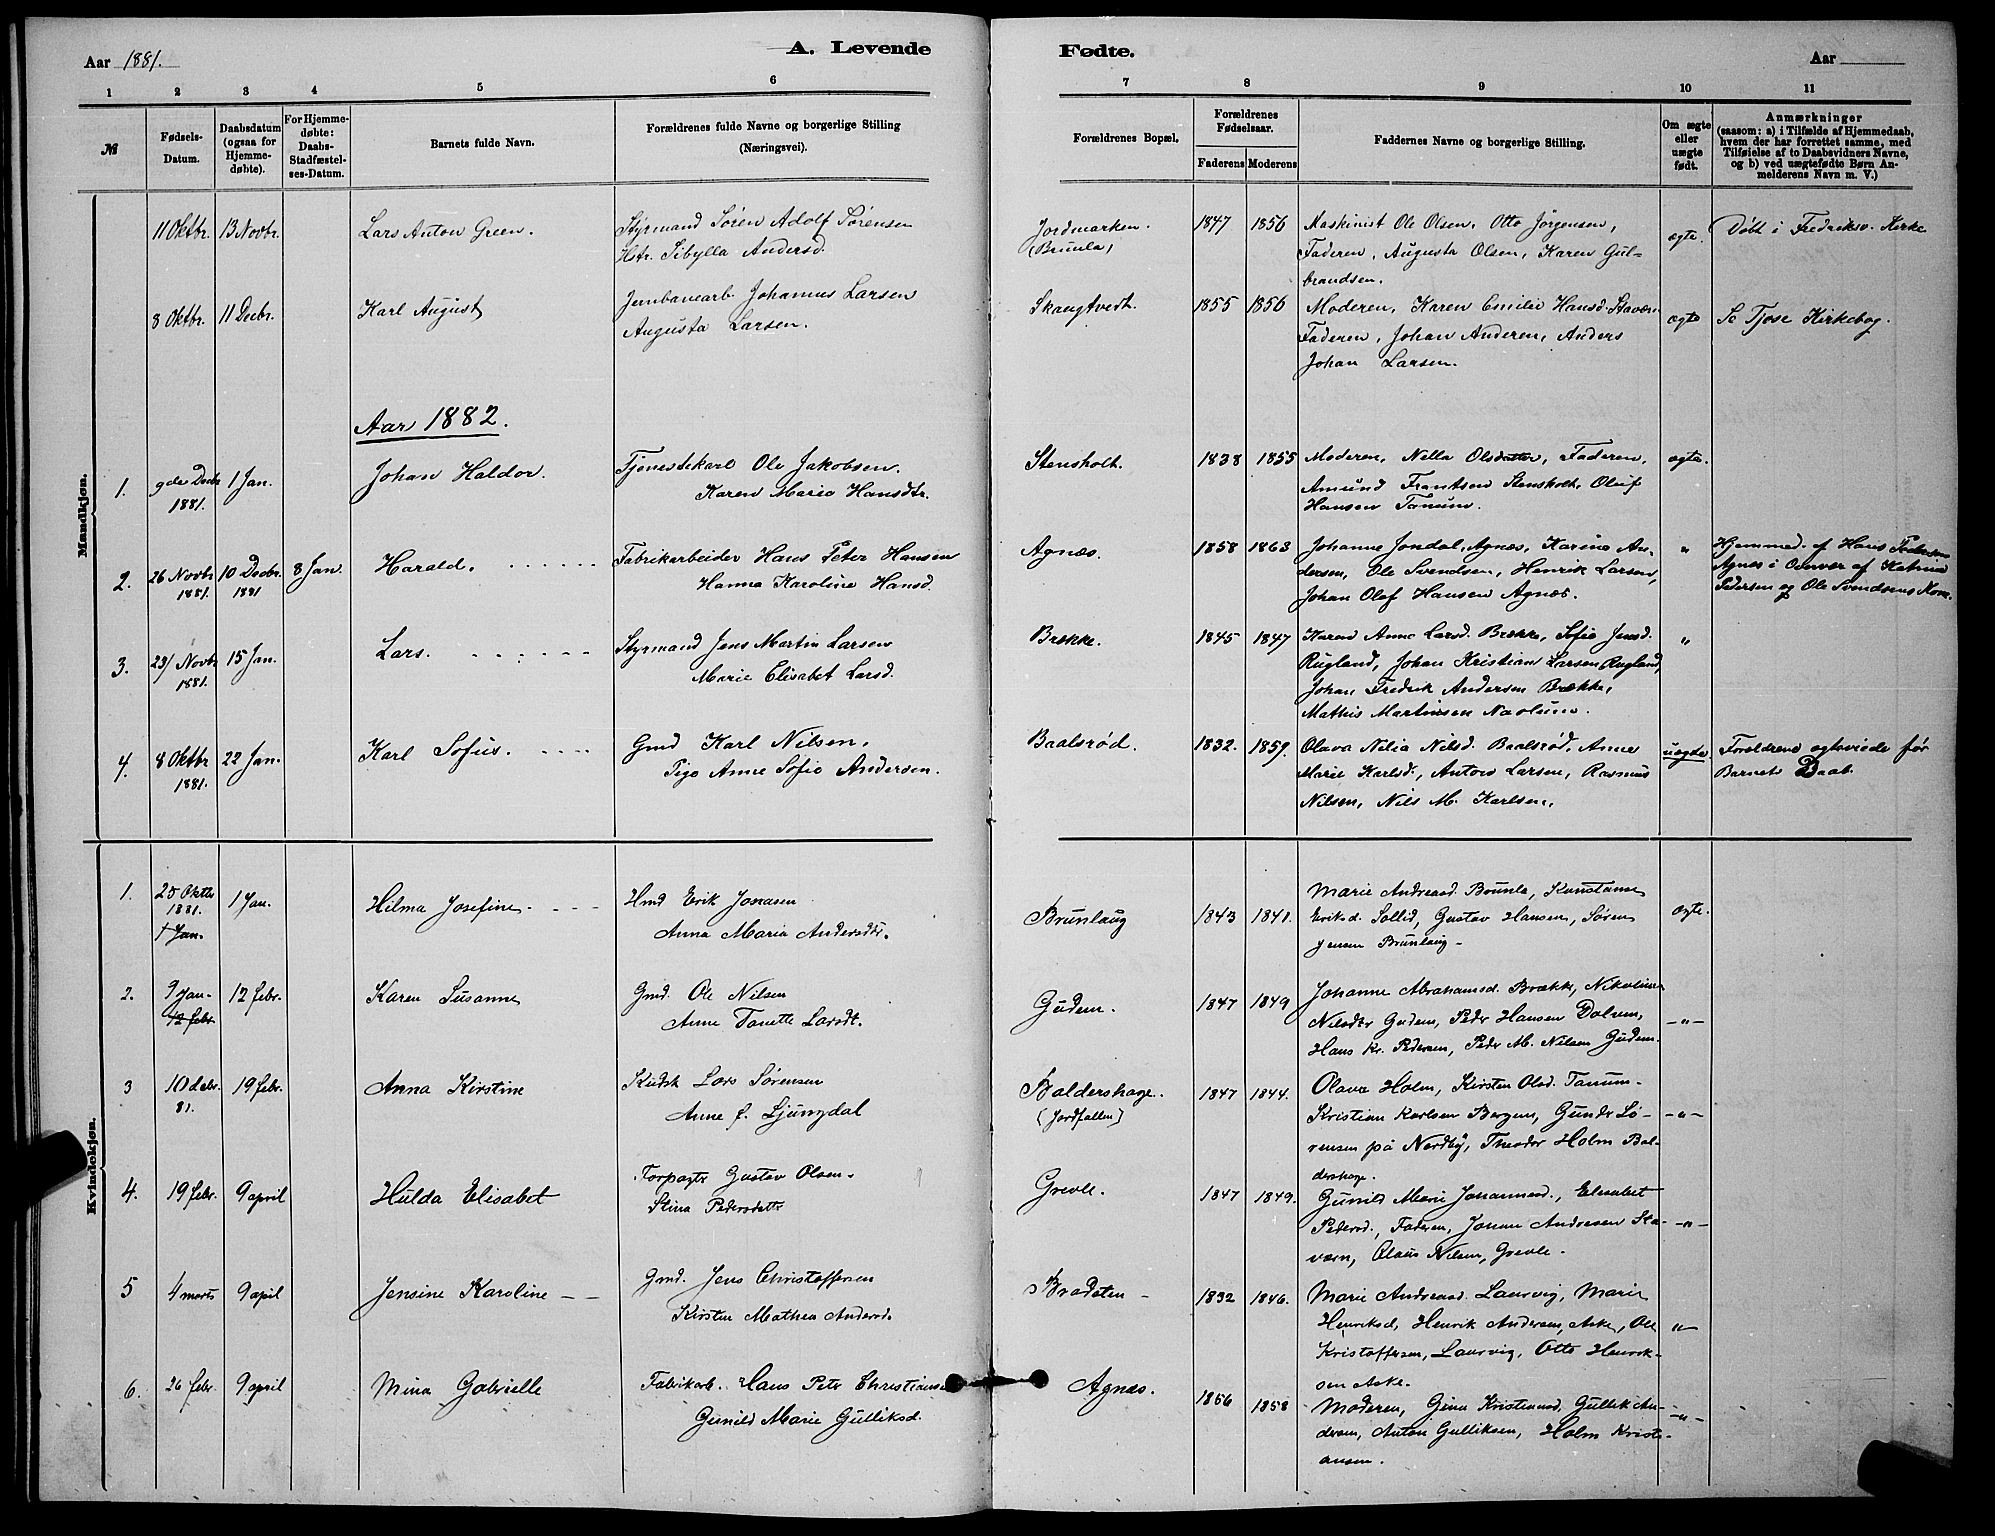 Aar 1881.
A. Levende
1 2 3 4 5 6
№
Fødsels-Datum.
Daabsdatum (ogsaa for Hjemme-døbte).
For Hjemme-døbte: Daabs-Stadfæstel-ses-Datum.
Barnets fulde Navn.
Forældrenes fulde Navne og borgerlige Stilling
(Næringsvei).
Mandkjøn.
11 Oktbr. 13 Novbr. Lars Anton Green. Styrmand Søren Adolf Sørensen
Hstr. Sibylla Andersd.
8 Oktbr. 11 Decbr. Karl August Jernbanearb. Johannes Larsen
Augusta Larsen.
Aar 1882.
1. 9de Decbr 1 Jan. Johan Haldor. Tjenestekarl Ole Jakobsen.
1881. Karen Marie Hansdtr.
2. 26 Novbr 10 Decbr. 8 Jan. Harald. Fabrikarbeider Hans Peter Hansen
1881. 1881 Hanna Karoline Hansd.
3. 23/ Novbr 15 Jan. Lars. Styrmand Jens Martin Larsen
1881. Marie Elisabet Larsd.
4. 8 Oktbr 22 Jan. Karl Sofus. Gmd Karl Nilsen.
1881. Pige Anne Sofie Andersen.
Kvindekjøn.
1. 25 Oktbr 1 Jan. Hilma Josefine Hmd Erik Jonasen
1881. Anna Maria Andersdtr.
1 Jan.
2. 9 Jan- 12 febr. Karen Susanne Gmd. Ole Nilsen
12 febr Anne Tonette Larsdt.
3 10 debr. 19 febr. Anna Kirstine Kudsk Lars Sørensen
81. Anne f. Ljungdal
4. 19 febr. 9 april Hulda Elisabet Forpagtr Gustav Olsen
Stina Pedersdattr
5 4 marts 9 april Jensine Karoline Gmd. Jens Christoffersen
Kirsten Mathea Andersd.
6. 26 febr. 9 april Mina Gabrielle Fabrikarb. Hans Petr Christiansen
Gunild Marie Gulliksd.
Fødte.
Aar
7 8 9 10 11
Forældrenes Bopæl.
Forældrenes Fødselsaar.
Faderens Moderens
Faddernes Navne og borgerlige Stilling.
Om ægte eller uægte født.
Anmærkninger
(saasom: a) i Tilfælde af Hjemmedaab,
hvem der har forrettet samme, med
Tilføielse af to Daabsvidners Navne,
og b) ved uægtefødte Børn An-
melderens Navn m. V.)
Jordmarken. 1847 1856 Maskinist Ole Olsen, Otto Jørgensen, ægte. Døbt i Fredriksv. Kirke
(Brunla) Faderen, Augusta Olsen, Karen Gul-
brandsen.
Skaugtvert. 1855 1856 Moderen, Karen Emilie Hansd. Stavæn ægte Se Tjose Kirkebog.
Faderen, Johan Anderen, Anders
Johan Larsen.
Stensholt. 1838 1855 Moderen, Nella Olsdatter, Faderen, ægte.
Amund Frantsen Stensholt, Oluf
Hansen Tanum.
Agnæs. 1858 1863 Johanne Jondal, Agnæs, Karine An- " Hjemmed. af Hans Pedersen
dersen, Ole Svendsen, Henrik Larsen, Agnes i Overvær af Katrine
Johan Olof Hansen Agnæs. Pedersen og Ole Svendsens Kone.
Brække. 1845 1847 Karen Anne Larsd. Brække, Sofie Jensd. "
Rugland, Johan Kristian Larsen Rugland,
Johan Fredrik Andersen Brække,
Mathis Martinsen Naolum.
Baalsrød. 1832. 1859. Olava Nilia Nilsd. Baalsrød, Anne uægte. Forældrene egteviede før
Marie Karlsd., Anton Larsen, Rasmus Barnets Daab.
Nilsen, Nils M. Karlsen.
Brunlaug 1843 1841. Marie Andreasd. Brunla, Konstanse ægte.
Eriksd. Sollid, Gustav Hansen, Søren
Jensen Brunlaug -
Gudem. 1847 1849 Johanne Abrahamsd. Brække, Nikoline
Nilsdtr Gudem, Peder Hansen Dolven, -"-
Hans Kr. Pedersen, Peder M. Nilsen Gudem.
Baldershage. 1847 1844. Olava Holm, Kirsten Olsd. Tanum-
(Jordfallen) Kristian Karlsen Bergem, Gundr Sø- -"-
rensen på Nordby, Theodor Holm Bal-
dershage.
Grevle. 1847 1849. Gunild Marie Johannesd., Elisabet
Pedersd., Faderen, Johan Andresen Sta- -"-
værn, Olaus Nilsen, Grevle.
Bradsten - 1832 1846. Marie Andreasd. Laurvig, Marie
Henriksd, Henrik Andersen, Aske, Ole "-
Kristoffersen, Laurvig, Otto Henrik-
sen Aske.
Agnæs. 1856 1858 Moderen, Gina Kristiansd, Gullik An-
dersen, Anton Gulliksen, Holm Kristi- -"-
ansen.